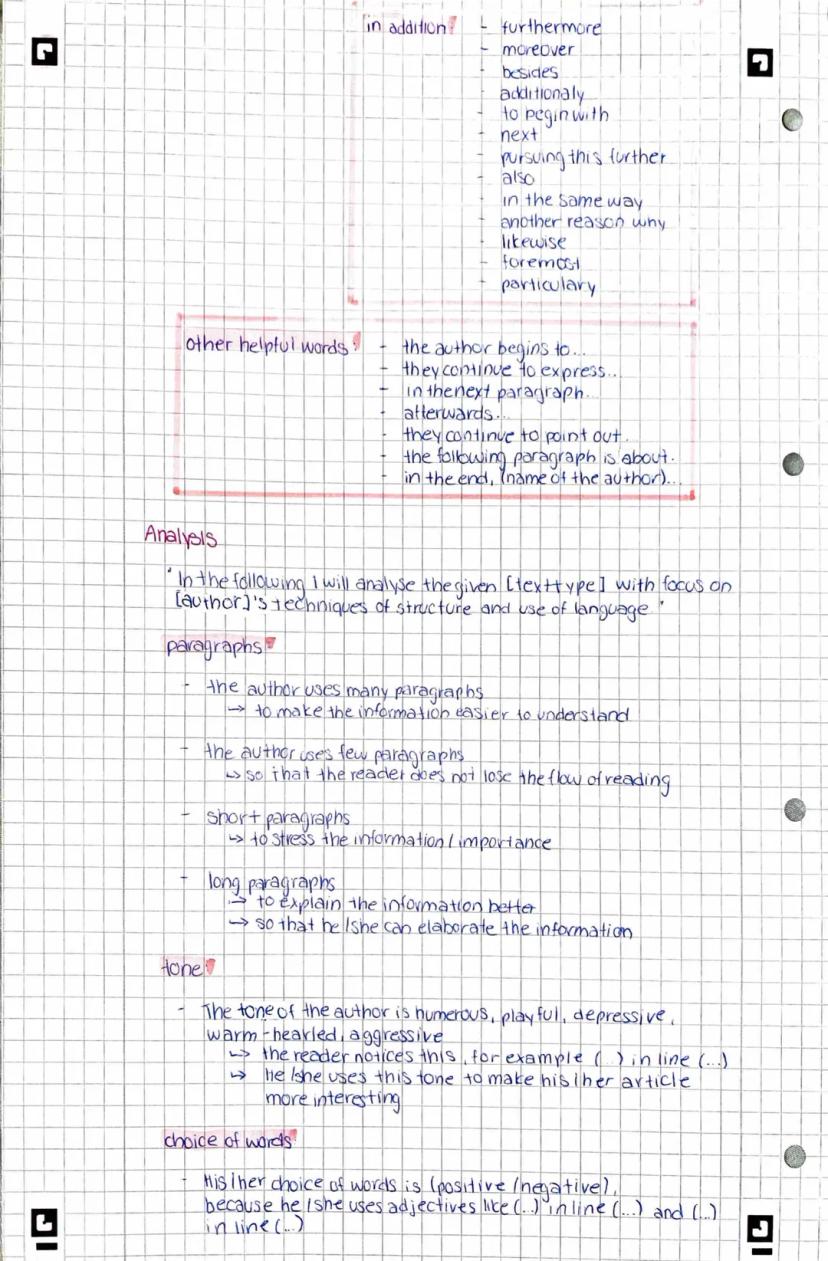 in addition:
- furthermore
- moreover
- besides
- additionaly
- to begin with
- next
- pursuing this further
- also
- in the same way
- another reason why
- likewise
- foremost
- particulary
other helpful words:
- the author begins to...
- they continue to express...
- in the next paragraph...
- afterwards...
- they continue to point out.
- the following paragraph is about.
- in the end, (name of the author)...
Analysis
"In the following I will analyse the given [texttype] with focus on
[author]'s techniques of structure and use of language."
paragraphs:
- the author uses many paragraphs
→ to make the information easier to understand
- the author uses few paragraphs
↳ so that the reader does not lose the flow of reading
- short paragraphs
↳ to stress the information / importance
- long paragraphs
↳ to explain the information better
↳ so that he /she can elaborate the information
tone:
- The tone of the author is humerous, playful, depressive,
warm-hearted, aggressive
↳ the reader notices this, for example (...) in line (...)
↳ he /she uses this tone to make his/her article
more interesting
choice of words:
- His/her choice of words is (positive /negative),
because he /she uses adjectives like (...) in line (...) and (...)
in line (...)